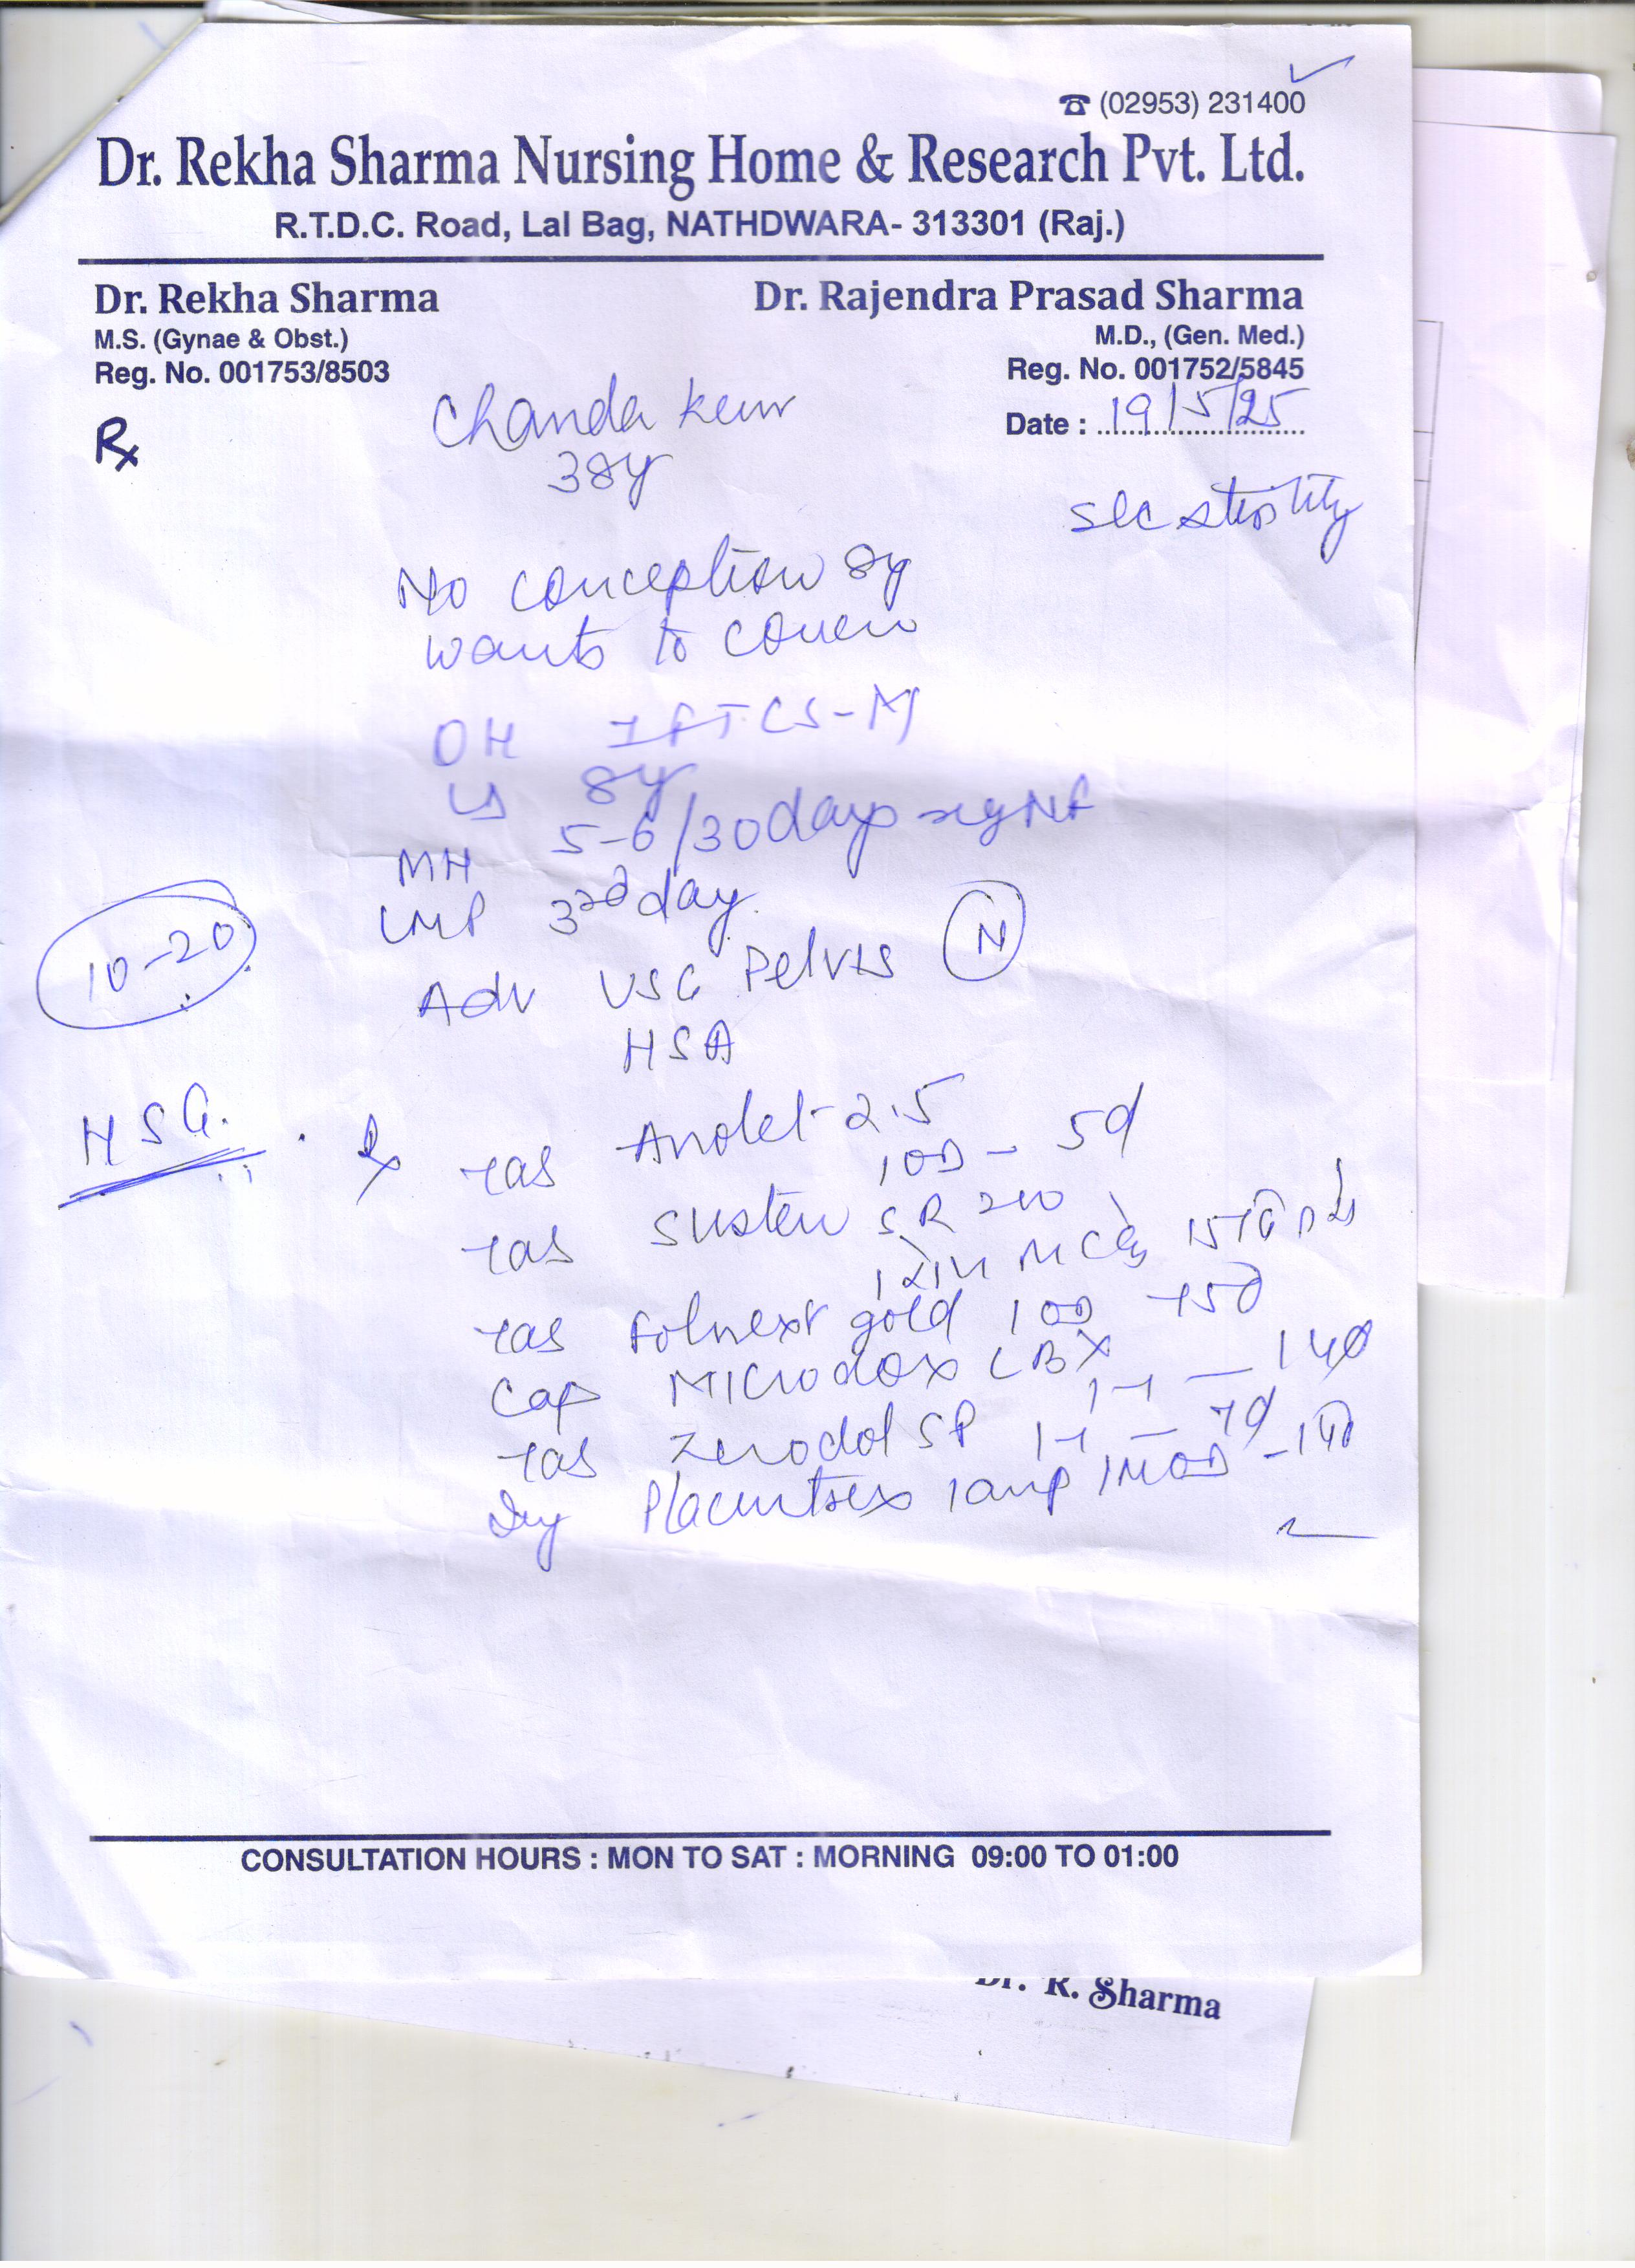 ☎ (02953) 231400
Dr. Rekha Sharma Nursing Home & Research Pvt. Ltd.
R.T.D.C. Road, Lal Bag, NATHDWARA- 313301 (Raj.)
Dr. Rekha Sharma
M.S. (Gynae & Obst.)
Reg. No. 001753/8503
Dr. Rajendra Prasad Sharma
M.D., (Gen. Med.)
Reg. No. 001752/5845
Date : 19/5/25
Rx
Chanda
38y
sec sterility
No conception 8y
wants to
OH 1FTCS-M
8y
MH 5-6/30 days reg
LMP 3rd day
10-20
Adv USG Pelvis N
HSG
HSG.
Rx Tab 2.5
1OD - 5d
Tab Susten SR 200
15
Tab Folnext gold 1OD
Cap Microdox LBX
1-1 - 14d
Tab Zerodol SP 1-1 - 7d
Inj Placentrex 1amp IM OD
CONSULTATION HOURS : MON TO SAT : MORNING 09:00 TO 01:00
Dr. R. Sharma